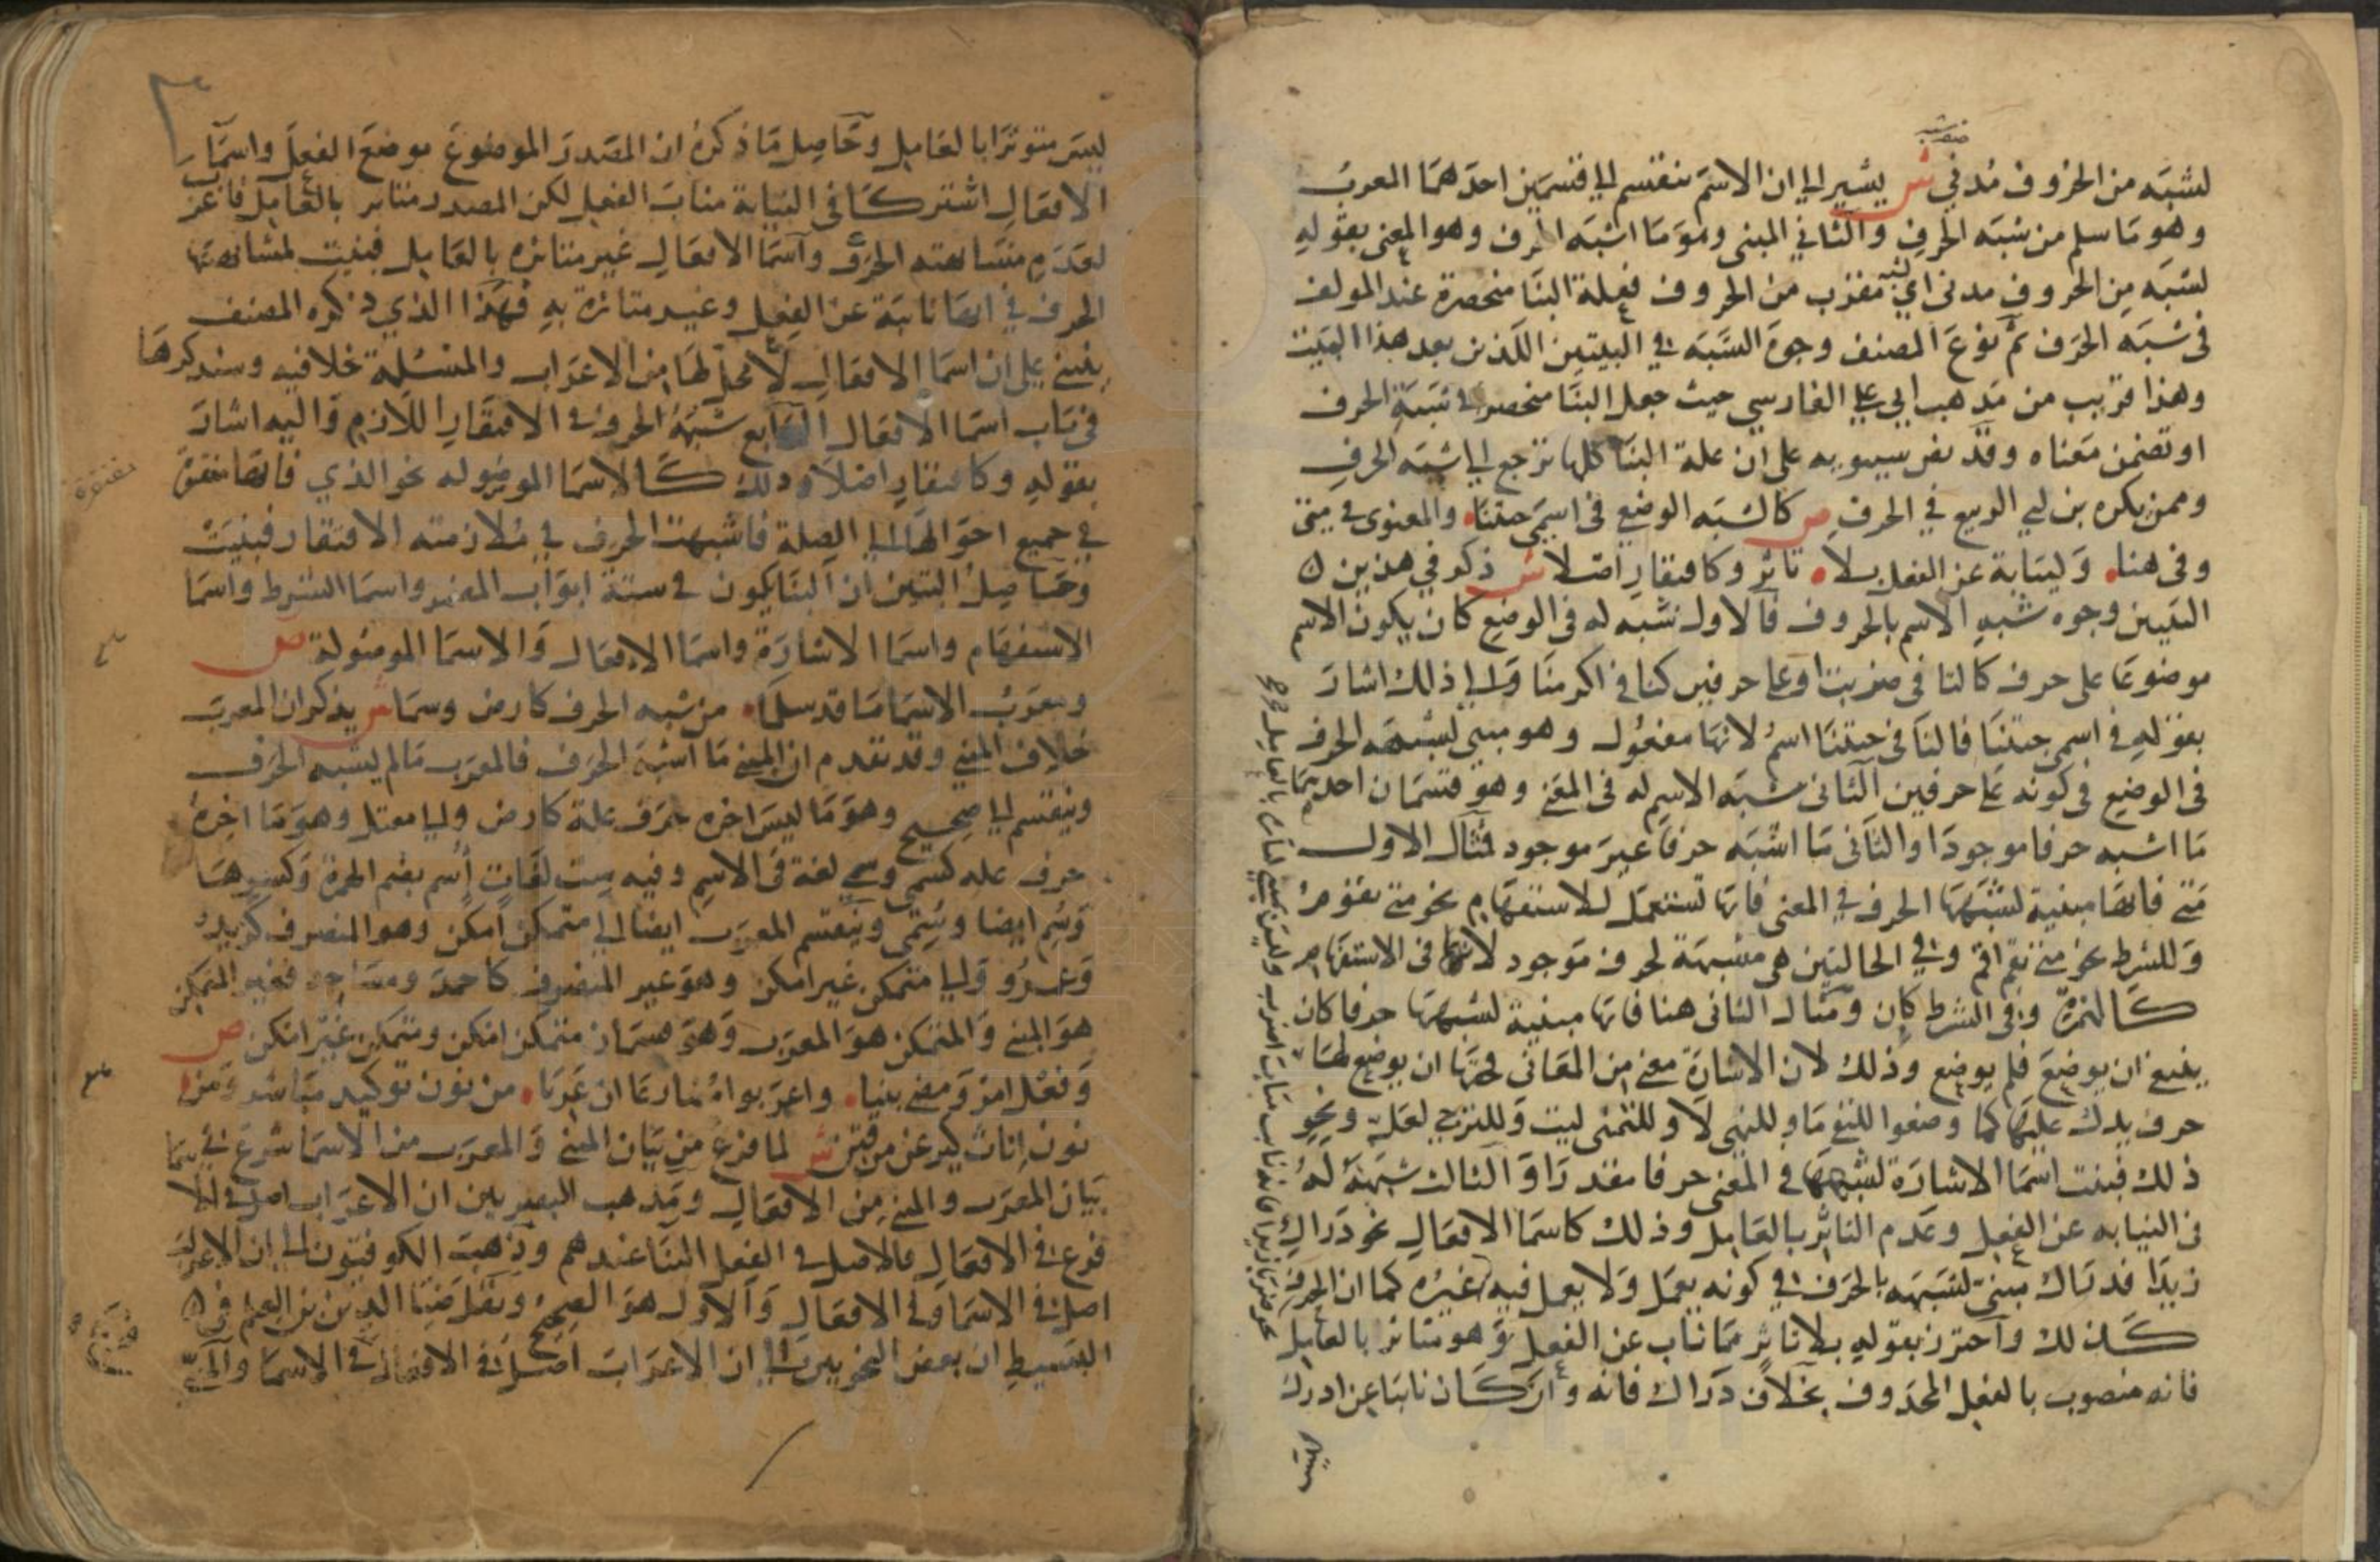 لشبه من الحروف مدني ش يشير الي ان الاسم ينقسم الي قسمين احدهما المعرب
وهو ما سلم من شبه الحرف والثاني المبني وهو ما اشبه الحرف وهو المعنى بقوله
لشبه من الحروف مدنى اي لشبه مقرب من الحروف فعلة البنا منحصرة عند المولف
فى شبه الحرف ثم نوع المصنف وجوه الشبه في البيتين اللذين بعد هذا البيت
وهذا قريب من مذهب ابي علي الفارسي حيث جعل البنا منحصرا في شبه الحرف
او تضمن معناه وقد نص سيبويه على ان علة البنا كلها ترجع الي شبه الحرف
وممن ذكره بن ابي الربيع في الحرف ص كالشبه الوضعي في اسمي جيتنا والمعنوي في متى
وفى هنا وكنيابة عن الفعل بلا تاثر وكافتقار اصلا ش ذكر في هذين
البيتين وجوه شبه الاسم بالحروف فالاول شبه له فى الوضع كان يكون الاسم
موضوعا على حرف كالتا فى ضربت او على حرفين كنا في اكرمنا والي ذلك اشار
بقوله في اسمي جيتنا فالنا في جيتنا اسم لانها مفعول وهو مبني لشبهه الحرف
فى الوضع فى كونه على حرفين الثاني شبه الاسم له فى المعنى وهو قسمان احدهما
ما اشبه حرفا موجودا والثاني ما اشبه حرفا غير موجود فمثال الاول
متى فانها مبنية لشبهها الحرف في المعنى فانها تستعمل للاستفهام نحو متى تقوم
وللشرط نحو متى تقم اقم وفي الحالتين هى مشبهة لحرف موجود لانها فى الاستفهام
كالهمزة وفى الشرط كان ومثال الثاني هنا فانها مبنية لشبهها حرفا كان
ينبغي ان يوضع فلم يوضع وذلك لان الاشارة معنى من المعاني فحقها ان يوضع لها
حرف يدل عليها كما وضعوا للنفي ما وللنهي لا وللتمني ليت وللترجي لعل ونحو
ذلك فبنيت اسما الاشارة لشبهها في المعنى حرفا مقدرا والثالث شبهه له
في النيابه عن الفعل وعدم التاثر بالعامل وذلك كاسما الافعال نحو دراك
زيدا فدراك مبني لشبهه بالحرف في كونه يعمل ولا يعمل فيه غيره كما ان الحرف
كذلك واحترز بقوله بلا تاثر مما ناب عن الفعل وهو متاثر بالعامل
فانه منصوب بالفعل المحذوف بخلاف دراك فانه وان كان نائبا عن ادرك
ليس متوثرا بالعامل وحاصل ما ذكره ان المصدر الموضوع موضع الفعل واسما
الافعال اشتركا في النيابة مناب الفعل لكن المصدر متاثر بالعامل فاعرب
لعدم مشابهته الحرف واسما الافعال غير متاثره بالعامل فبنيت لمشابهتها
الحرف في انها نائبة عن الفعل وغير متاثرة به فهذا الذي ذكره المصنف
ينبني على ان اسما الافعال لا محل لها من الاعراب والمسئلة خلافيه وسنذكرها
فى باب اسما الافعال الرابع شبهه الحروف في الافتقار اللازم واليه اشار
بقوله وكافتقار اصلا وذلك كالاسما الموصوله نحو الذي فانها مفتقرة
في جميع احوالها الي الصلة فاشبهت الحرف في ملازمته الافتقار فبنيت
وحاصل البيتين ان البنا يكون في ستة ابواب المضمر واسما الشرط واسما
الاستفهام واسما الاشارة واسما الافعال والاسما الموصولة ص
ومعرب الاسما ما قد سلما من شبه الحرف كارض وسما ش يذكر ان المعرب
خلاف المبني وقد تقدم ان المبني ما اشبه الحرف فالمعرب ما لم يشبه الحرف
وينقسم الي صحيح وهو ما ليس اخره حرف علة كارض والي معتل وهو ما اخره
حرف عله كسمى وسمى لغة فى الاسم وفيه ست لغات اسم بضم الهمزة وكسرها
وسم ايضا وسمى وينقسم المعرب ايضا الي متمكن امكن وهو المنصرف كزيد
وعمرو والي متمكن غير امكن وهو غير المنصرف كاحمد ومساجد فغير المتمكن
هو المبني والمتمكن هو المعرب وهو قسمان متمكن امكن ومتمكن غير امكن ص
وفعل امر ومضي بنيا واعربوا مضارعا ان عريا من نون توكيد مباشر ومن
نون اناث كيرعن من فتن ش لما فرغ من بيان المبني والمعرب من الاسما شرع في
بيان المعرب والمبني من الافعال ومذهب البصريين ان الاعراب اصل في الاسما
فرع في الافعال فالاصل في الفعل البنا عندهم وذهب الكوفيون الي ان الاعراب
اصل في الاسما وفي الافعال والاول هو الصحيح ونقل ضيا الدين بن العلج في
البسيط ان بعض النحويين الي ان الاعراب اصل في الافعال فى الاسما